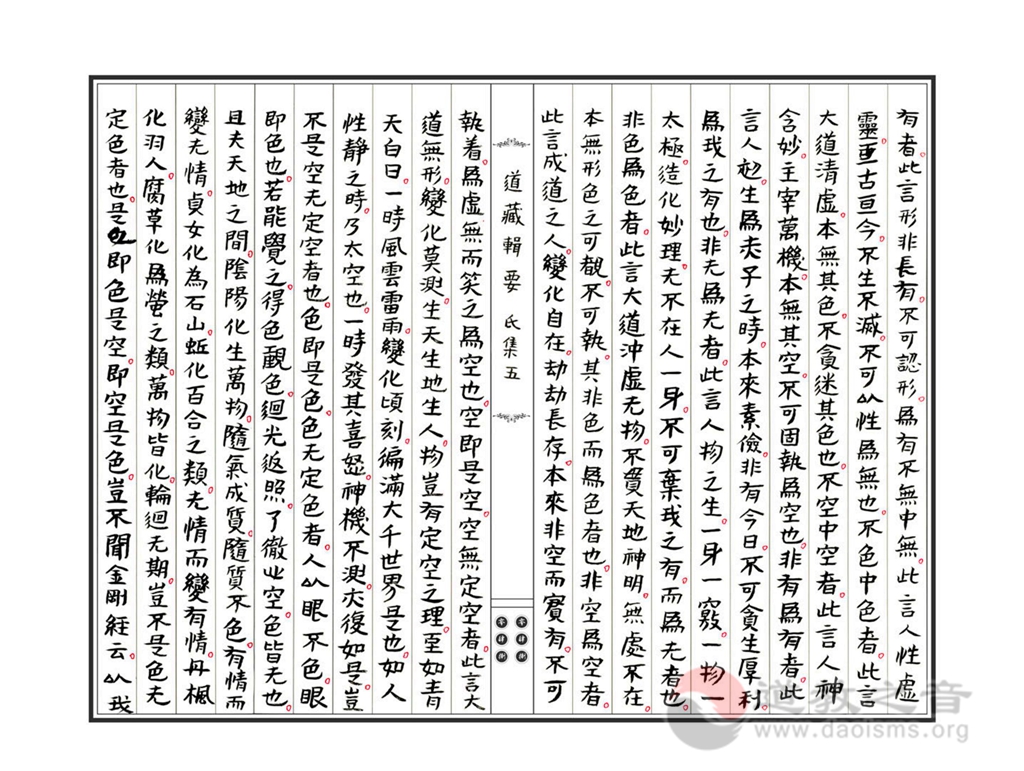 有者。此言形非長有。不可認形。爲有不無中無。此言人性虛
靈亘古亘今。不生不滅。不可以性爲無也。不色中色者。此言
大道清虛。本無其色。不貪迷其色也。不空中空者。此言人神
含妙。主宰萬機。本無其空。不可固執爲空也。非有爲有者。此
言人初生爲赤子之時。本來素儉。非有今日。不可貪生厚利
爲我之有也。非无爲无者。此言人物之生。一身一竅。一物一
太極。造化妙理。无不在人一身。不可棄我之有。而爲无者也
非色爲色者。此言大道沖虛。无物不貫。天地神明。無處不在。
本無形色之可覩。不可執。其非色而爲色者也。非空爲空者。
此言成道之人。變化自在。劫劫長存。本來非空而實有。不可
道藏輯要 氐集五
執着。爲虛無而笑之爲空也。空即是空。空無定空者。此言大
道無形。變化莫測。生天生地生人。物豈有定空之理。至如青
天白日。一時風雲雷雨。變化頃刻。徧滿大千世界是也。如人
性靜之時。乃太空也。一時發其喜怒。神機不測。亦復如是。豈
不是空无定空者也。色即是色。色无定色者。人以眼不色。眼
即色也。若能覺之。得色觀色。迴光返照。了徹此空。色皆无也。
且夫天地之間。陰陽化生萬物。隨氣成質。隨質不色。有情而
變无情。貞女化為石。山蚯化百合之類。无情而變有情。丹楓
化羽人。腐草化爲螢之類。萬物皆化。輪迴无期。豈不是色无
定色者也。是知即色是空。即空是色。豈不聞金剛經云。以我
道教之音
www.daoisms.org